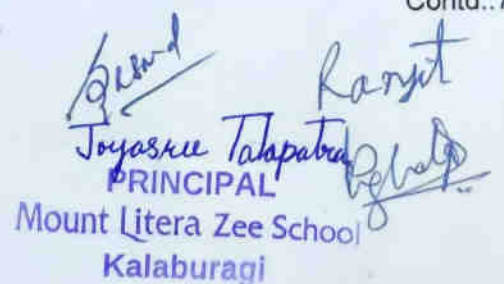 Contd..
Ranjit
Joyasree Talapatra
PRINCIPAL
Mount Litera Zee School
Kalaburagi